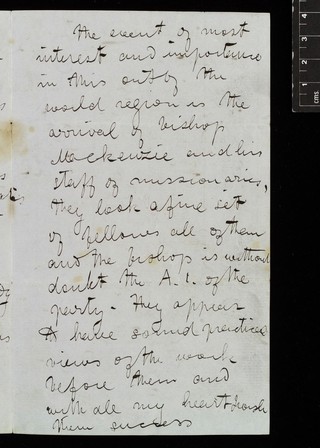 the event of most
interest and importance
in this out by the
world region is the
arrival of bishop
Mackenzie and his
staff of missionaries,
they look a fine set
of fellows all of them
and the bishop is without
doubt the A.1. of the
party - they appear
to have sound practical
views of the work
before them and
with all my heart I wish
them success
1
2
3
4
cms